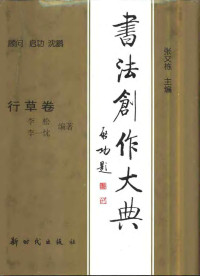 顾问 启功 沈鹏
张文格 主编
書法創作大典
启功題
行草卷
李松
李一忱 编著
新时代出版社